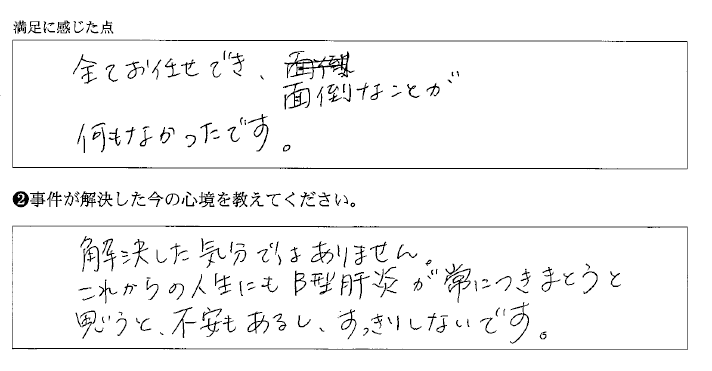 満足に感じた点
全てお任せでき、
面倒なことが
何もなかったです。
❷事件が解決した今の心境を教えてください。
解決した気分ではありません。
これからの人生にもB型肝炎が常につきまとうと
思うと、不安もあるし、すっきりしないです。